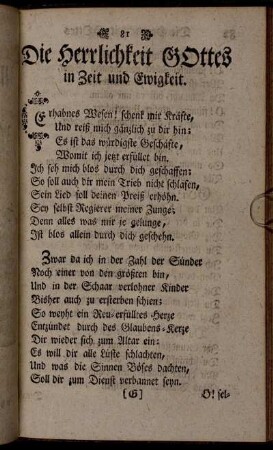 81
Die Herrlichkeit GOttes
in Zeit und Ewigkeit.
Erhabnes Wesen! schenk mir Kräfte,
Und reiß mich gänzlich zu dir hin:
Es ist das würdigste Geschäfte,
Womit ich jetzt erfüllet bin.
Ich seh mich blos durch dich geschaffen:
So soll auch dir mein Trieb nicht schlafen,
Sein Lied soll deinen Preiß erhöhn.
Sey selbst Regierer meiner Zunge:
Denn alles was mir je gelunge,
Ist blos allein durch dich geschehn.
Zwar da ich in der Zahl der Sünder
Noch einer von den größten bin,
Und in der Schaar verlohrner Kinder
Bisher auch zu ersterben schien:
So weyht ein Reu-erfülltes Herze
Entzündet durch des Glaubens-Kerze
Dir wieder sich zum Altar ein:
Es will dir alle Lüste schlachten,
Und was die Sinnen Böses dachten,
Soll dir zum Dienst verbannet seyn.
[G] O! sel-